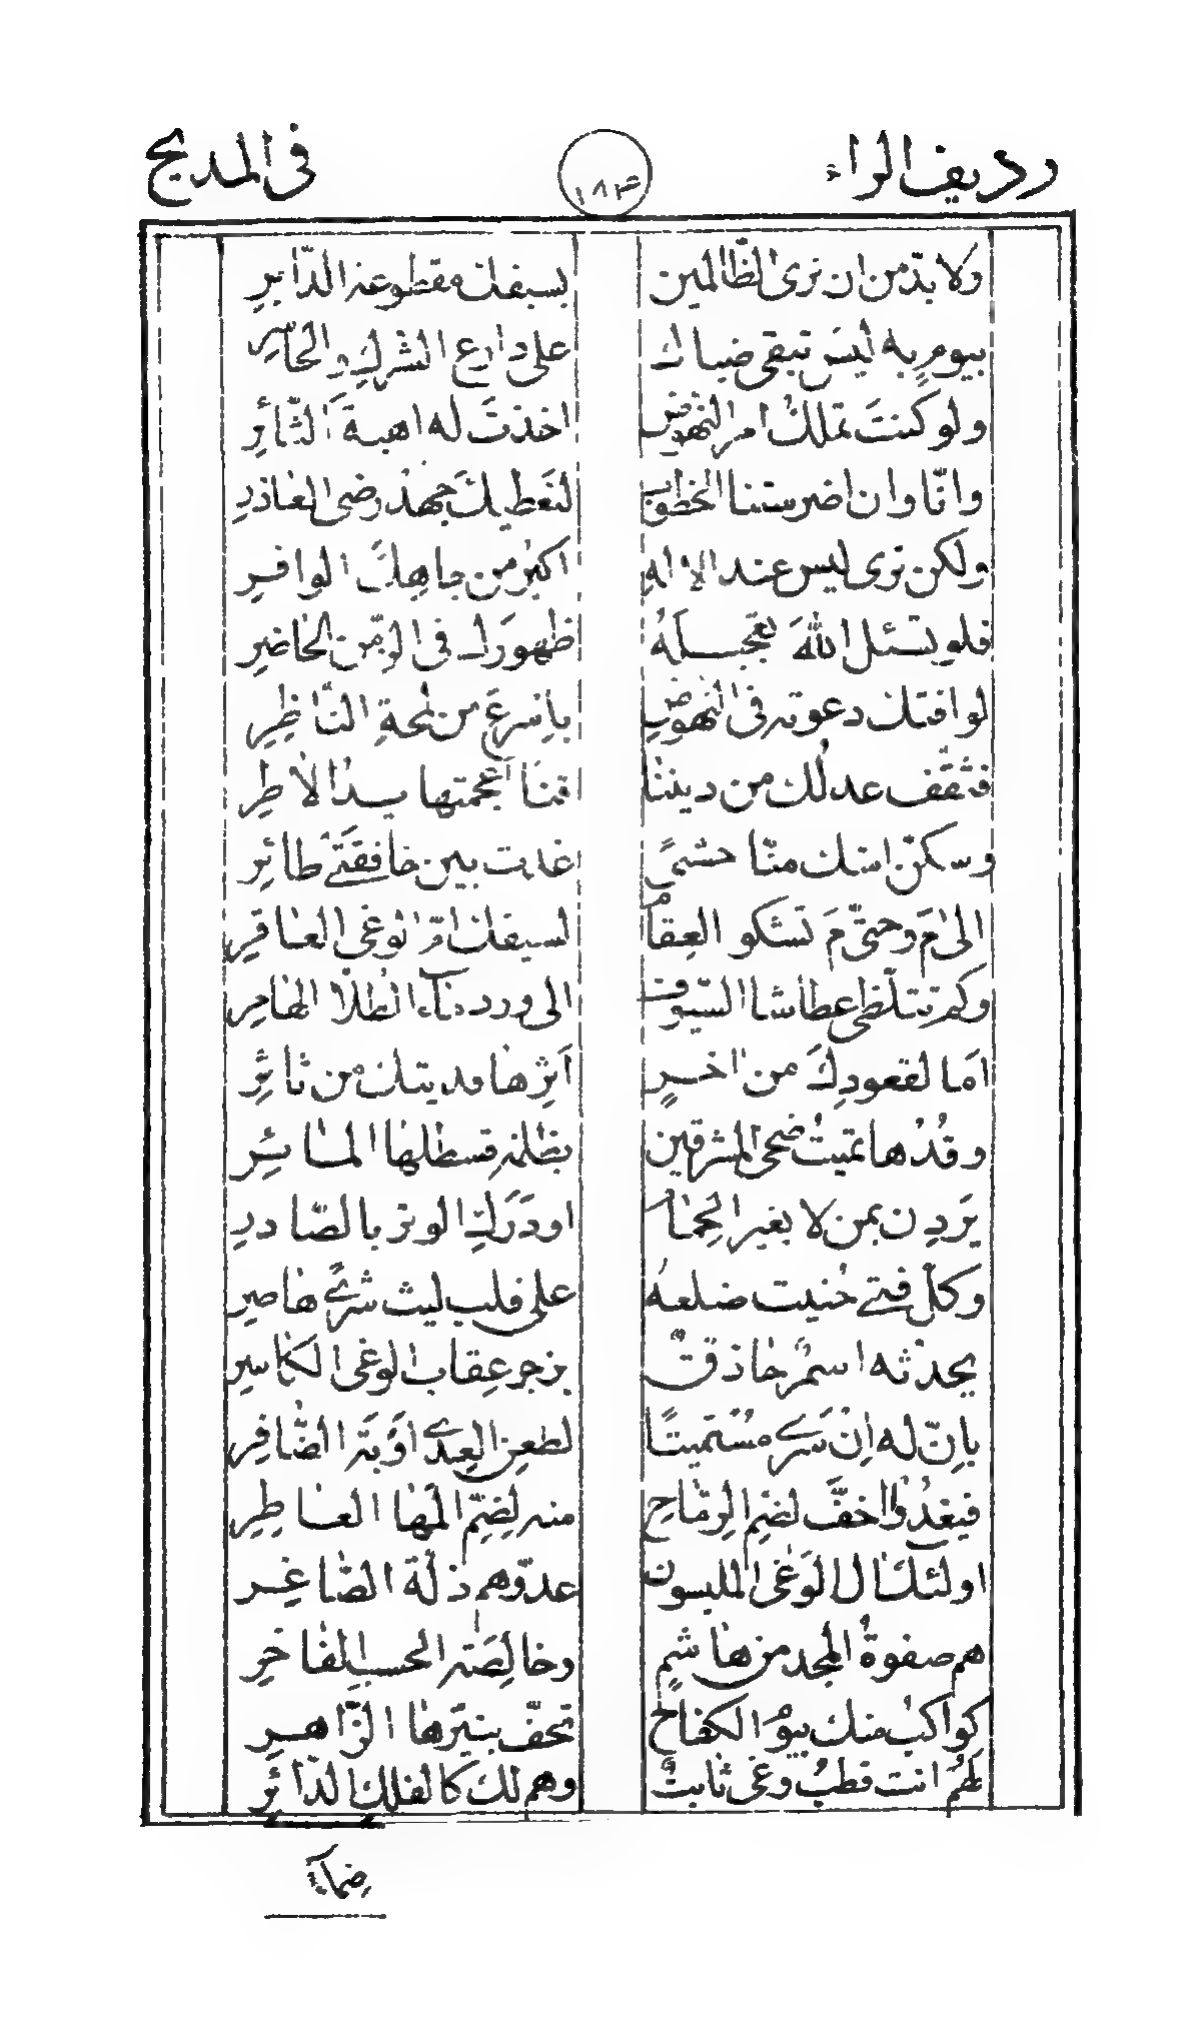 رديف الراء ١٨٣ في المديح
ولا بدّ من ان نرى الظّالمين بسيفك مقطوعة الدّابر
بيوم به ليس تبقى ضباك على دارع الشرك والحاسر
ولو كنتَ تملك امر النهوض اخذتَ له اهبة الثّائر
وانّا وان اضرستنا الخطوب لنعطيك جهد رضى العاذر
ولكن نرى ليس عند الإله اكبر من جاهك الوافر
فلو تسئل اللهَ تعجيله ظهورك في الزّمن الحاضر
لوافتك دعوته في النهوض باسرع من لمحة النّاظر
فثقّف عدلك من ديننا قنا أعجمتها يد الأطر
وسكّن امنك منّا حشىً غدت بين خافقتي طائر
الى مَ وحتّى مَ تشكو العقام لسيفك امّ الوغى العاقر
وكم تتلظّى عطاشا السّيوف الى ورد ماء الطلا الهامر
اما لقعودك من آخرٍ أثرها فديتك من ثائر
وقُدْها تميت ضحى المشرقين بظلمة قسطلها المائر
يردن بمن لا يغير الحمام او درك الوتر بالصّادر
وكلّ فتى حنيت ضلعه على قلب ليث شرى هاصر
يحدّثه اسمر حاذق بزجر عقاب الوغى الكاسر
بانّ له إنْ سرى مستميتًا لطعن العدى اوبة الظّافر
فيغدو اخفّ لضم الرماح منه لضمّ المها العاطر
اولئك آل الوغى الملبسون عدوّهم ذلّة الصّاغر
هم صفوة المجد من هاشم وخالصة الحسب الفاخر
كواكب منك بيوم الكفاح تحفّ بنيّرها الزّاهر
لهم انت قطب وغى ثابت وهم لك كالفلك الدّائر
ضماء